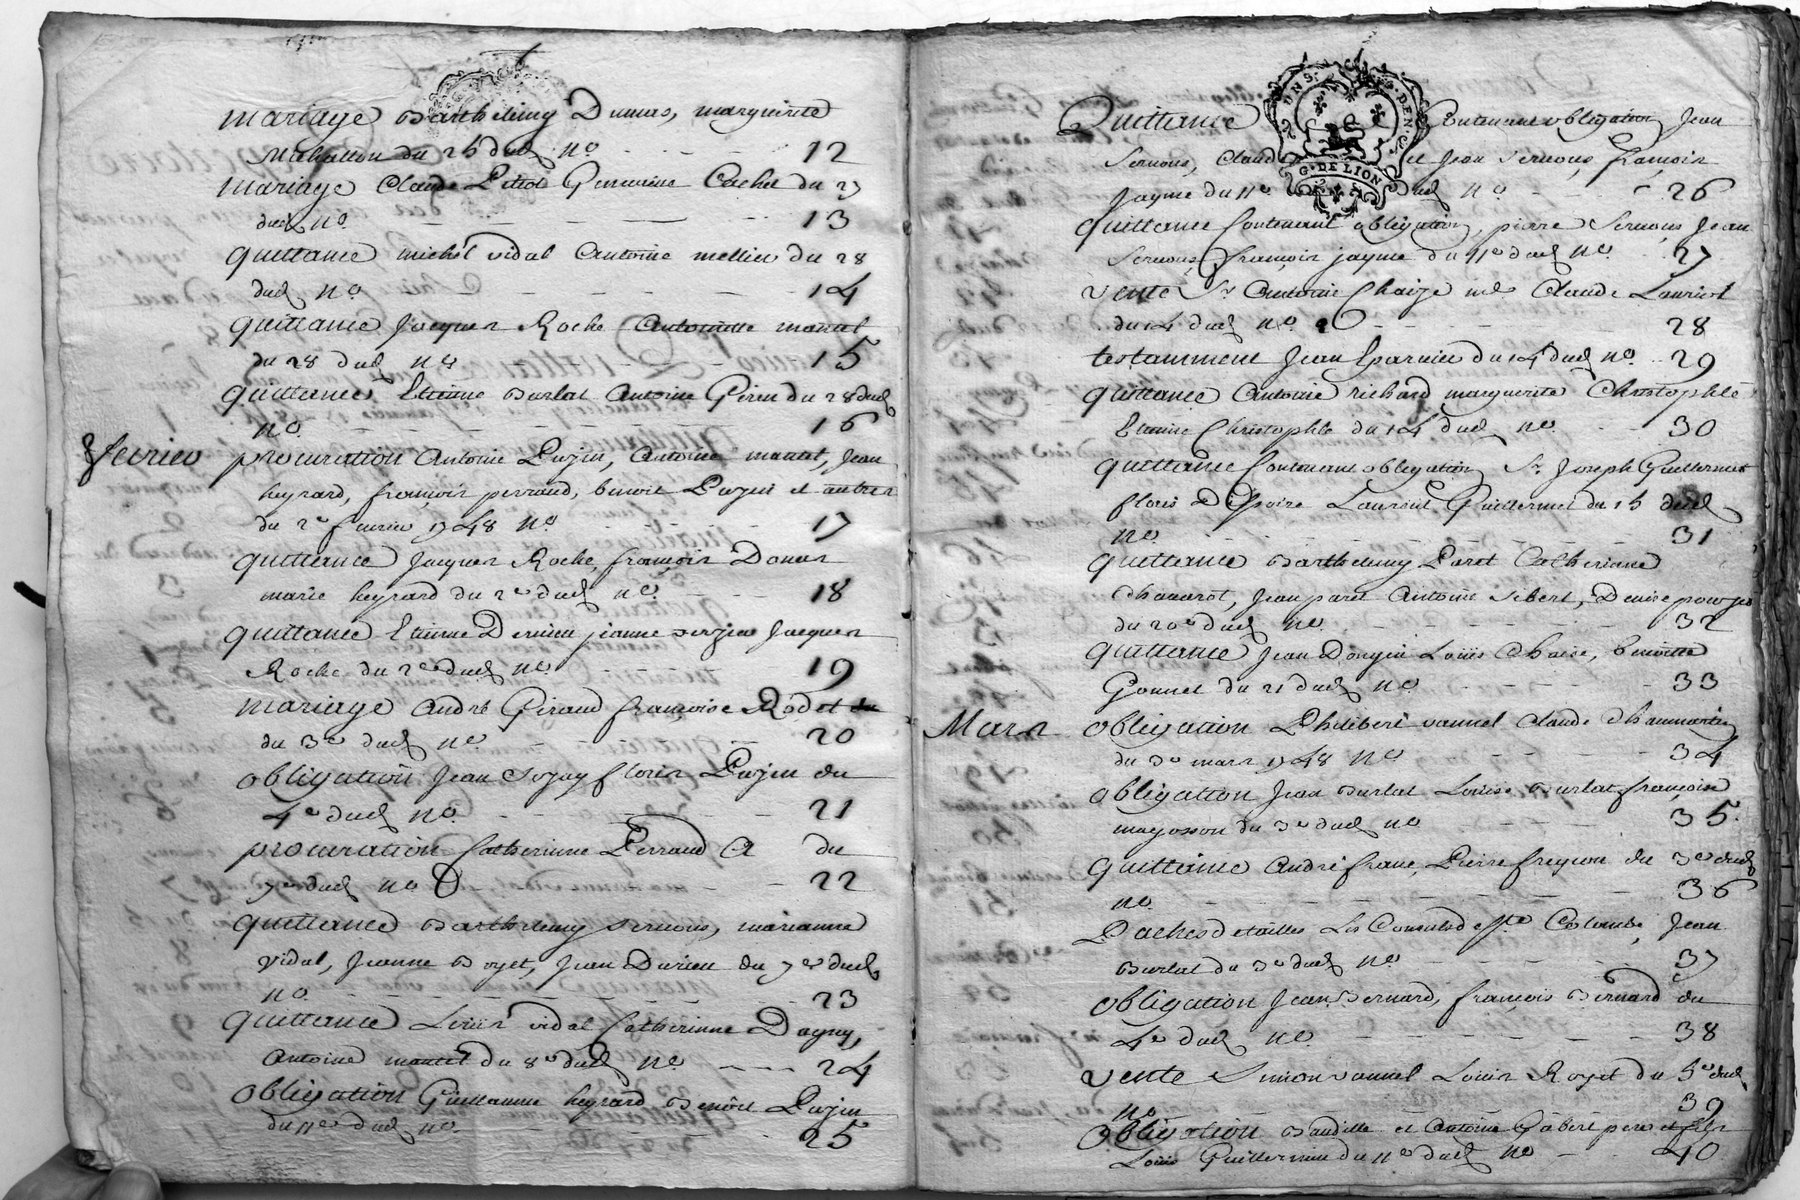 mariage Barthelemy Dumas, marguerite
Mihallon du 25 dud. no 12
mariage Claude Genevieve Cachet du 27
dud. no 13
quittance michel vidal Antoine mellier du 28
dud. no 14
quittance Jacques Roche Antoinette mantel
du 28 dud. no 15
quittance Etienne Burlat Antoine Girin du 28 dud.
no. 16
fevrier procuration Antoine Pupin, Antoine mantel, Jean
heyrard, françois perraud, benoit Pupin et autres
du 2e fevrier 1748 no 17
quittance Jacques Roche, françois
marie heyrard du 2e dud. no. 18
quittance Etienne jeanne Jacques
Roche du 2e dud. no 19
mariage André Giraud françoise Rodet du
du 3e dud. no 20
obligation Jean floris Pupin du
4e dud. no. 21
procuration Catherinne Perraud A du
7e dud. no 22
quittance Barthelemy Servous, marianne
Vidal, Jeanne Boyet, Jean Durieu du 7e dud.
no. 23
quittance Louis vidal Catherinne Dagny,
Antoine mantel du 8e dud. no 24
obligation Guillaume heyrard Benoit Pupin
du 11e dud. no. 25
Quittance Contenant obligation Jean
Servous, Claude et Jean Servous, françois
Jayme du 11e dud. no 26
UN S. G. DE LION
quittance Contenant obligation, pierre Servous Jean
Servous, françois jayme du 11e dud. no 27
vente Sr Antoine Chaize Claude Lauriol
du 14 dud. no 28
testamment Jean Eparvier du 14 dud. no 29
quittance Antoine richard marguerite Christophle
Etienne Christophle du 14 dud. no 30
quittance Contenant obligation Sr Joseph Guillermet
floris Laurent Guillermet du 15 dud.
no. 31
quittance Barthelemy Paret Catherinne
Jean paret Antoine Sibert, Denise
du 20e dud. no. 32
quittance Jean Louis Chaise, benoitte
Gonnet du 21 dud. no 33
Mars obligation Philibert vannel Claude
du 3e mars 1748 no 34
obligation Jean Burlat Louise Burlat françoise
mayosson du 3e dud. no 35.
quittance André franc, Pierre du 3e dud.
no. 36
Paches detailles Les Consuls de Ste Colombe, Jean
Burlat du 3e dud. no. 37
obligation Jean Bernard, françois Bernard du
4e dud. no. 38
vente Simon vannel Louis Royet du 5e dud.
no 39
obligation et Antoine pere et fils
Louis Guillermin du 11e dud. no 40